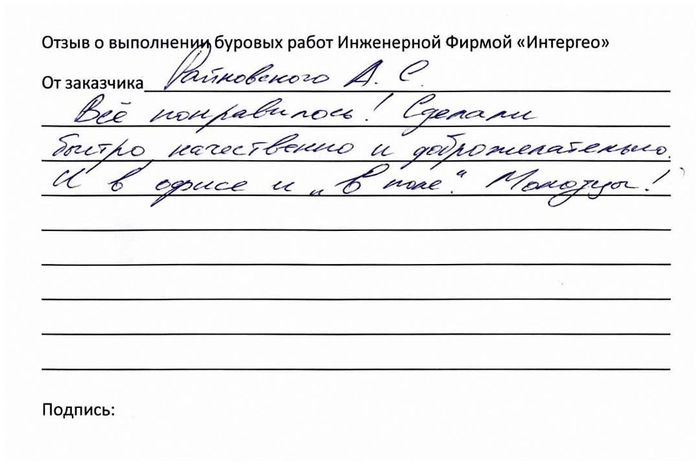 Отзыв о выполнении буровых работ Инженерной Фирмой «Интергео»
От заказчика Райковского А. С.
Всё понравилось! Сделали
быстро, качественно и доброжелательно.
И в офисе и „в поле“. Молодцы!
Подпись: